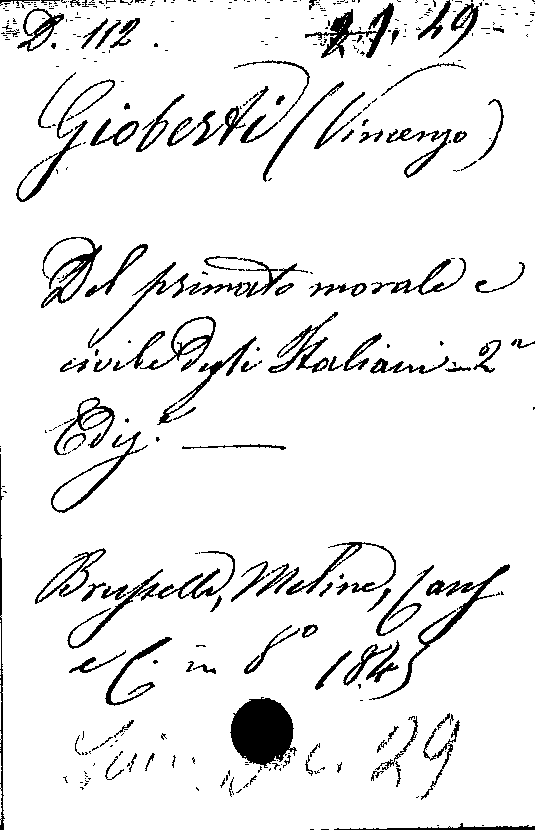 D. 112.
21. 49
Gioberti (Vincenzo)
Del primato morale e
civile degli Italiani - 2ª
Ediz.e
Brusselle, Meline, Cans
e C. in 8º 1845
29